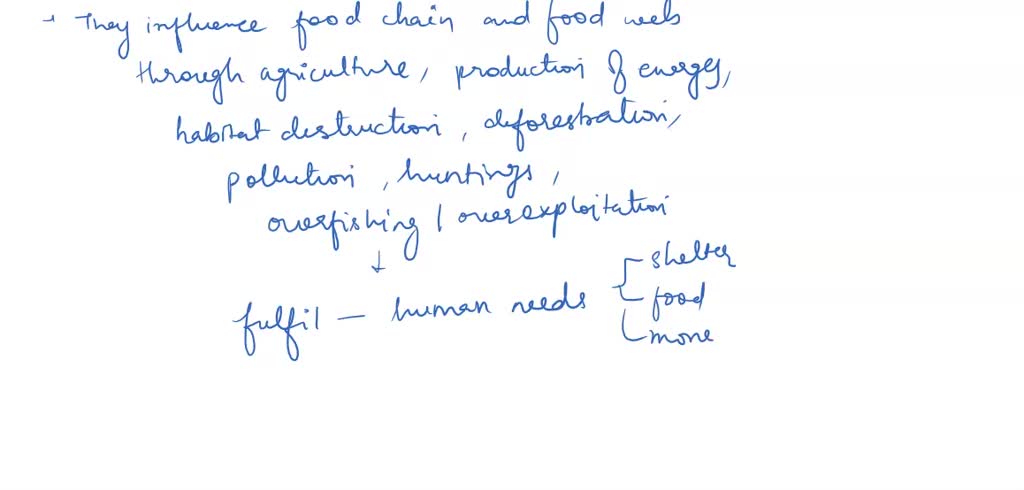 They influence food chain and food webs
through agriculture, production of energy,
habitat destruction, deforestation,
pollution, huntings,
overfishing / overexploitation
↓
fulfil — human needs
shelter
food
mone